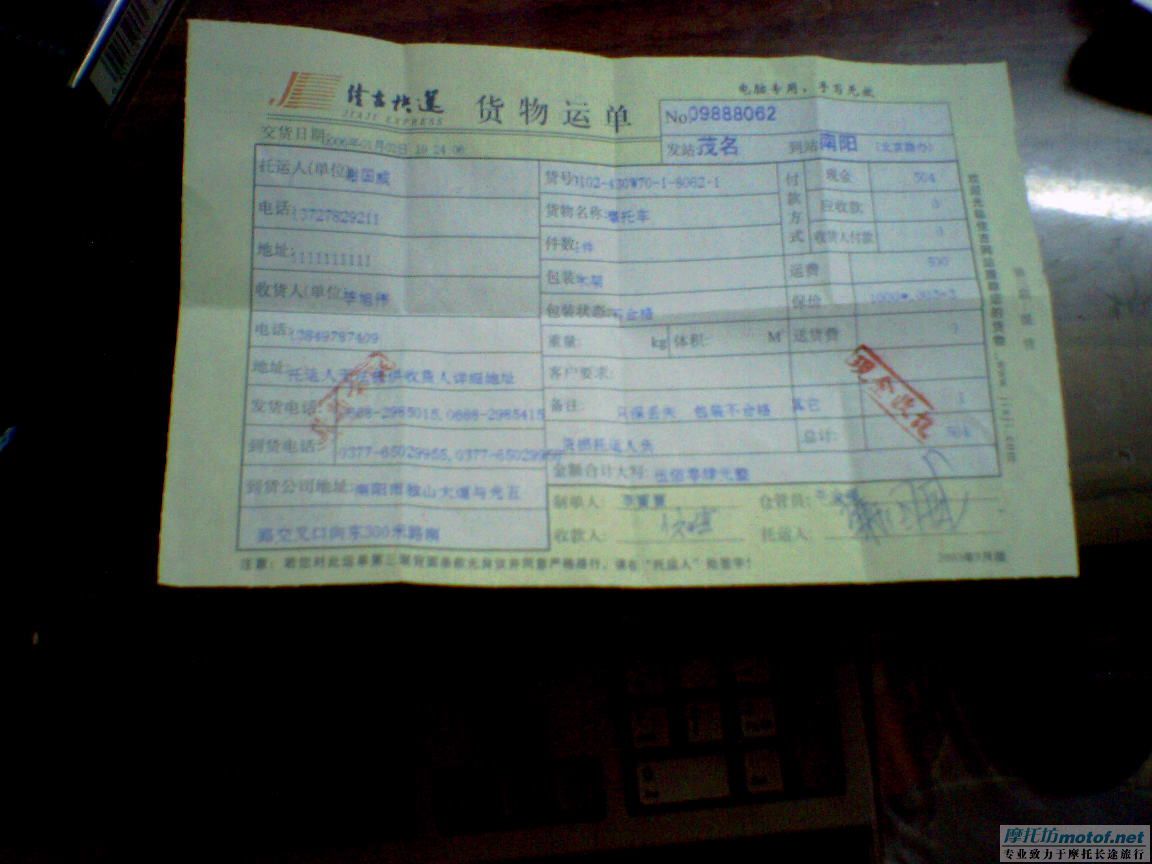 佳吉快运
JIAJI EXPRESS
货物运单
电脑专用，手写无效
No 09888062
发站 茂名 到站 南阳
交货日期
托运人(单位) 谢国威
货号
付款方式
现金 504
电话: 13727829211
货物名称: 摩托车
应收款 0
地址: 1111111111
件数: 1件
收货人付款 0
收货人(单位)
包装: 木架
运费 500
包装状态: 不合格
保价
电话: 13849787409
重量: kg 体积: M
送货费 0
地址: 托运人无法提供收货人详细地址
客户要求:
发货电话: 0668-2985015,0668-2985415
备注: 只保丢失 包装不合格
其它 1
到货电话: 0377-65029955,0377-6502995
货损托运人负
总计: 504
金额合计大写: 伍佰零肆元整
到货公司地址: 南阳市独山大道与光五
路交叉口向东300米路南
制单人:
仓管员:
收款人:
托运人:
现金收讫
注意: 若您对此运单第二联背面条款无异议并同意严格履行，请在“托运人”处签字!
摩托坊motof.net
专业致力于摩托长途旅行